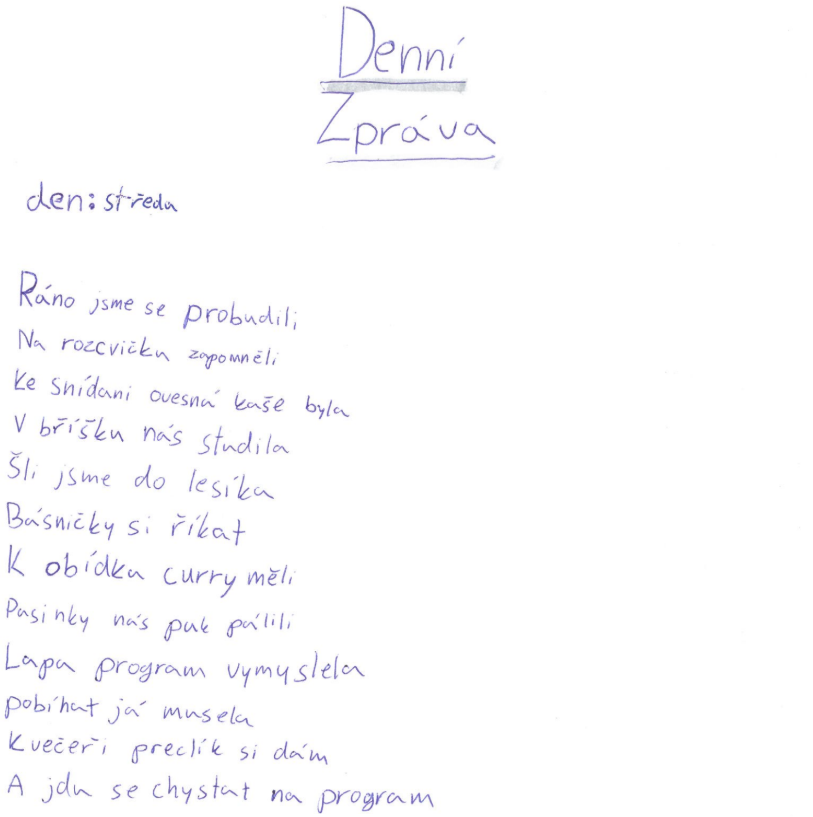 Denní
Zpráva
den: středa
Ráno jsme se probudili
Na rozcvičku zapomněli
Ke snídani ovesná kaše byla
V bříšku nás studila
Šli jsme do lesíka
Básničky si říkat
K obídku curry měli
Pusinky nás pak pálili
Lapa program vymyslela
pobíhat já musela
K večeři preclík si dám
A jdu se chystat na program